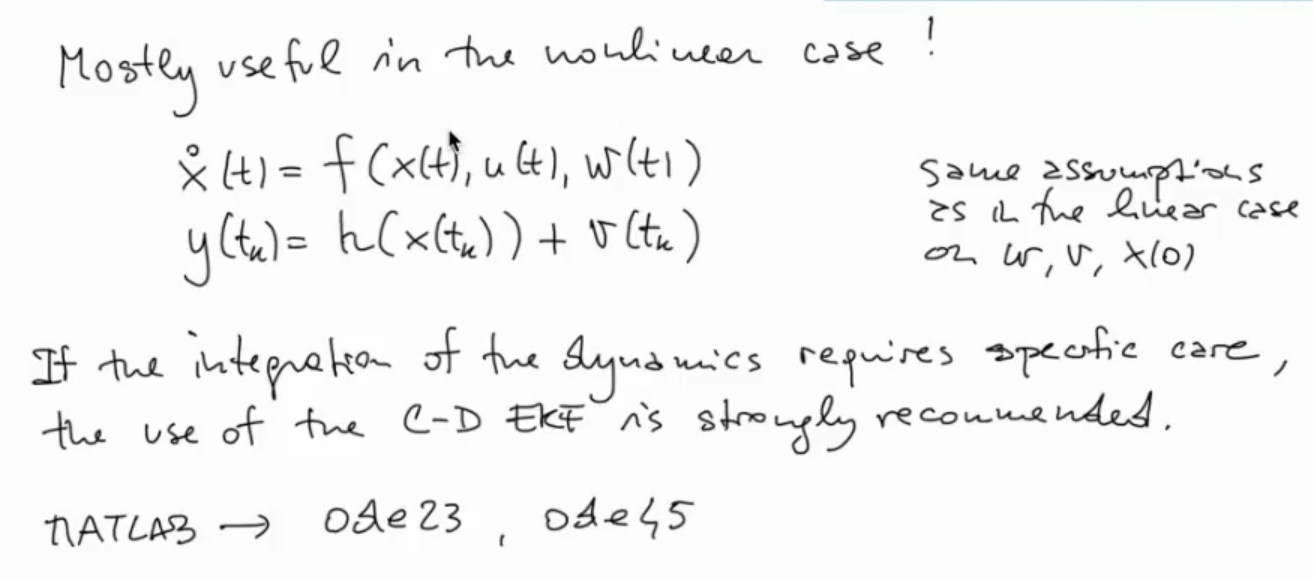 Mostly useful in the nonlinear case !
ẋ(t) = f(x(t), u(t), w(t))
y(tₖ) = h(x(tₖ)) + v(tₖ)
same assumptions
as in the linear case
on w, v, x(0)
If the integration of the dynamics requires specific care,
the use of the C-D EKF is strongly recommended.
MATLAB → ode23, ode45